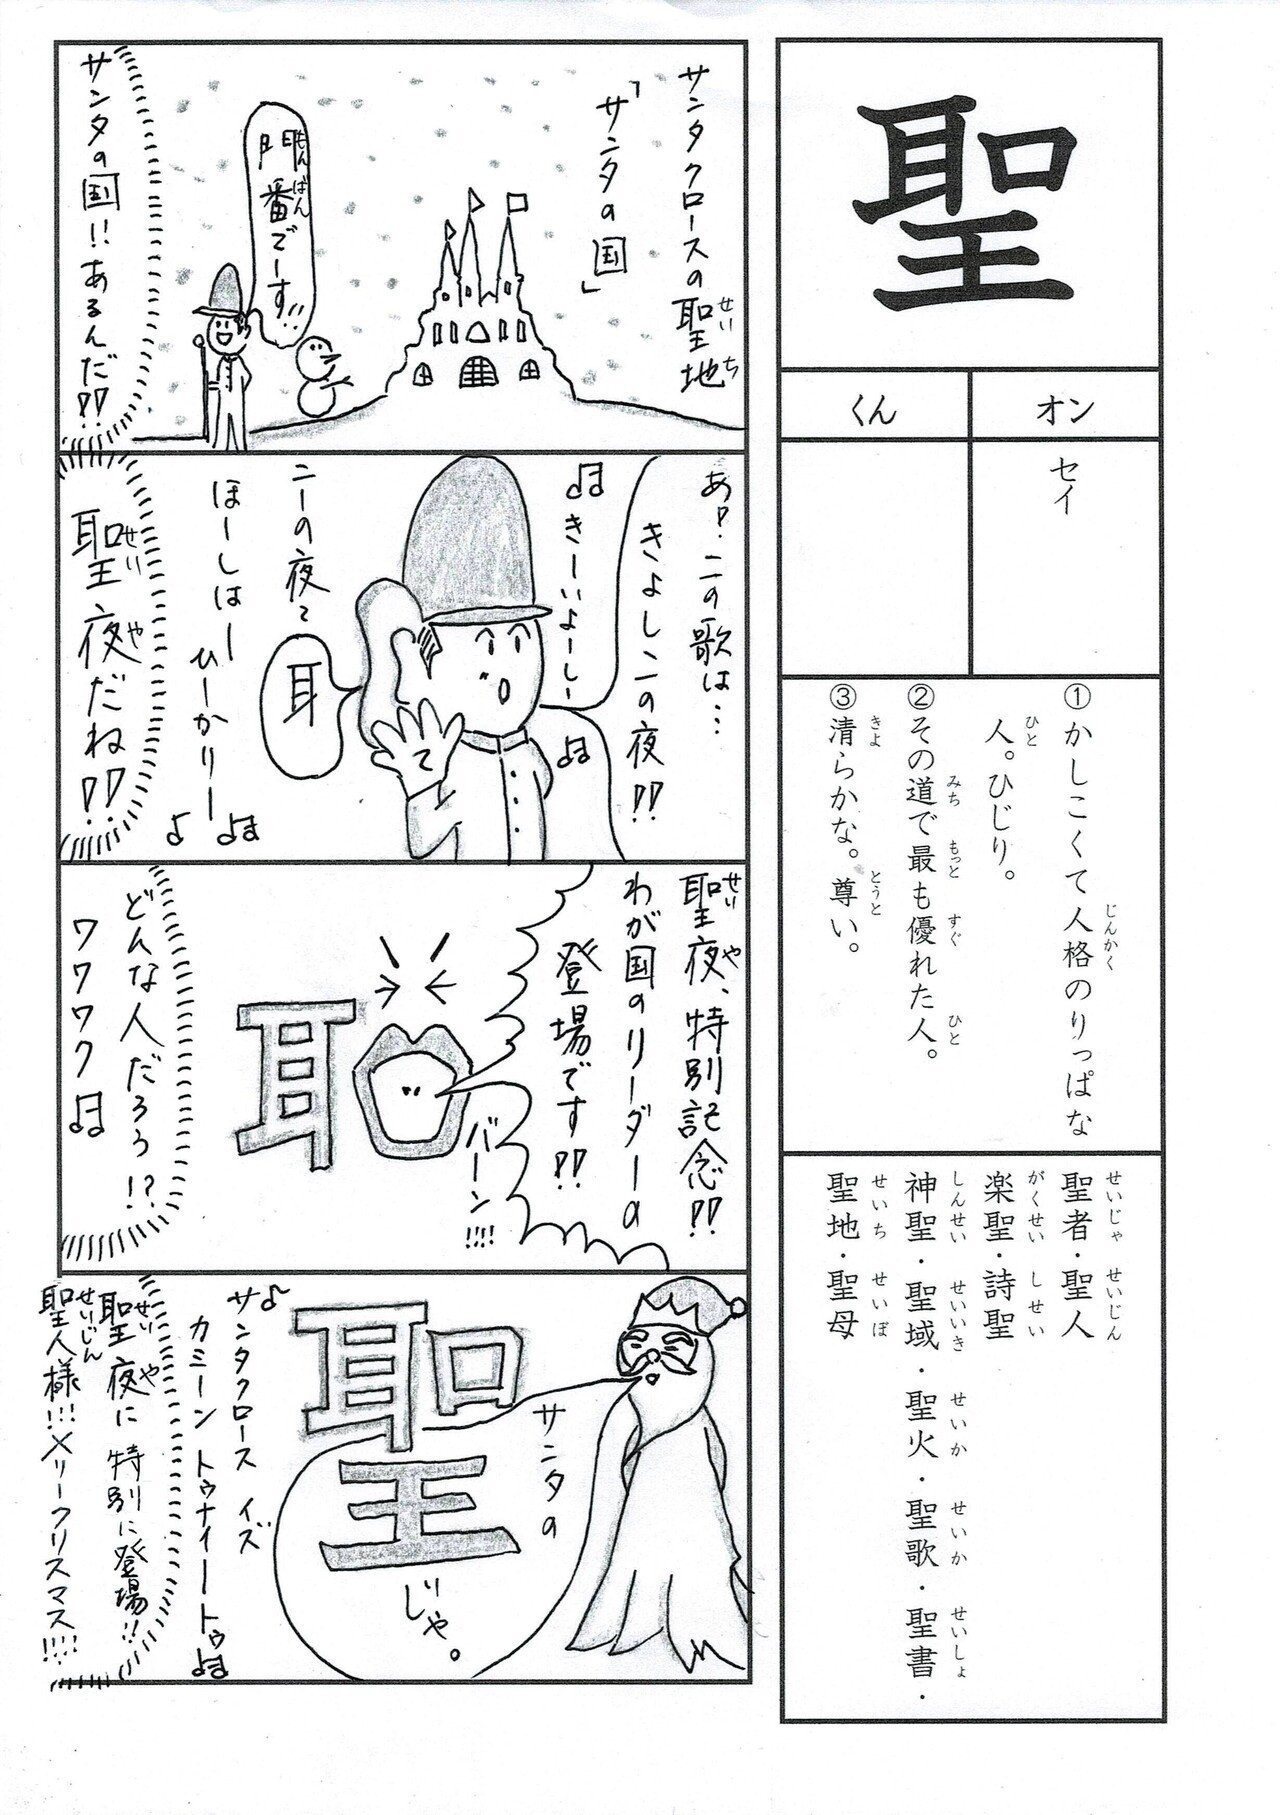 聖
オン
くん
セイ
①かしこくて人格のりっぱな
じんかく
人。ひじり。
ひと
②その道で最も優れた人。
みち もっと すぐ ひと
③清らかな。尊い。
きよ とうと
聖者・聖人
せいじゃ せいじん
楽聖・詩聖
がくせい しせい
神聖・聖域・聖火・聖歌・聖書・
しんせい せいいき せいか せいか せいしょ
聖地・聖母
せいち せいぼ
サンタクロースの聖地
せいち
「サンタの国」
門番でーす!!
もんばん
サンタの国!!あるんだ!!
あ!!この歌は…
きよしこの夜!!
♫きーいよーしー♫
こーの夜て
耳
ほーしはー
ひーかりー♪♫
聖夜だね!!
せいや
聖夜、特別記念!!
せいや
わが国のリーダーの
登場です!!
バーン!!!!
耳口
どんな人だろう!?
ワクワク♫
サンタの
聖
じゃ。
♪サンタクロース イズ
カミーン トゥナイートゥ♫
聖夜に特別に登場!!
せいや
聖人様!!!メリークリスマス!!!!
せいじん